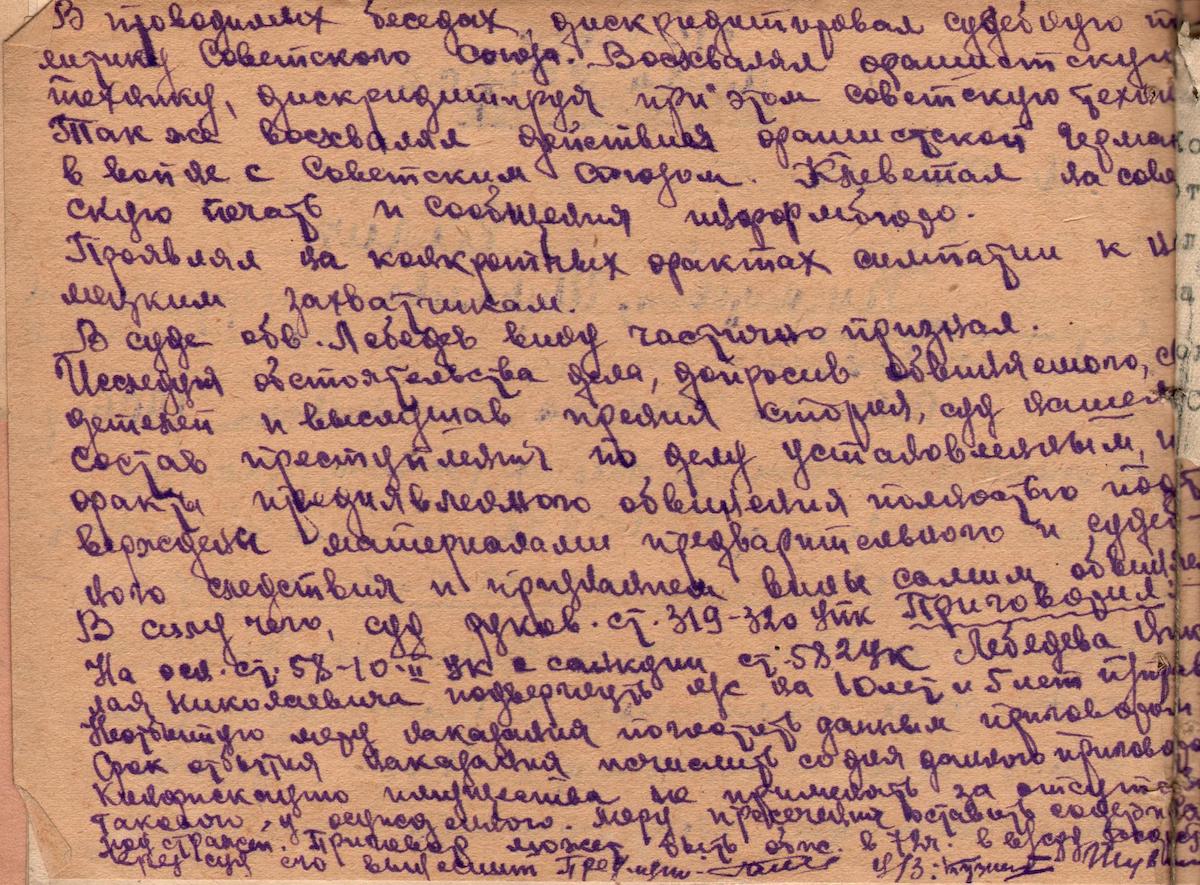 В проводимых беседах дискредитировал судебную по
литику Советского Союза. Восхвалял фашистскую
технику, дискредитируя при этом советскую техни
Так же восхвалял действия фашистской Герман
в войне с Советским Союзом. Клеветал на совет
скую печать и сообщения информбюро.
Проявлял на конкретных фактах симпатии к не
мецким захватчикам.
В суде обв. Лебедев вину частично признал.
Исследуя обстоятельства дела, допросив обвиняемого, сви
детелей и выслушав прения сторон, суд нашел
состав преступления по делу установленным, и
факты предъявленного обвинения полностью под
верждены материалами предварительного и судеб-
ного следствия и признанием вины самим обвиняем
В силу чего, суд руков. ст. 319-320 УПК Приговорил:
На осн. ст. 58-10-II УК с санкции ст. 58 2 УК Лебедева Ник
лая Николаевича подвергнуть л/с на 10 лет и 5 лет
меру наказания поглотить данным приговором
Срок отбытия наказания исчислить со дня данного приговора
Конфискацию имущества не применять за отсутст
такового у осужденного. Меру пресечения оставить содержа
под стражей. Приговор может быть обж. в 72 ч. в
через суд его вынесший